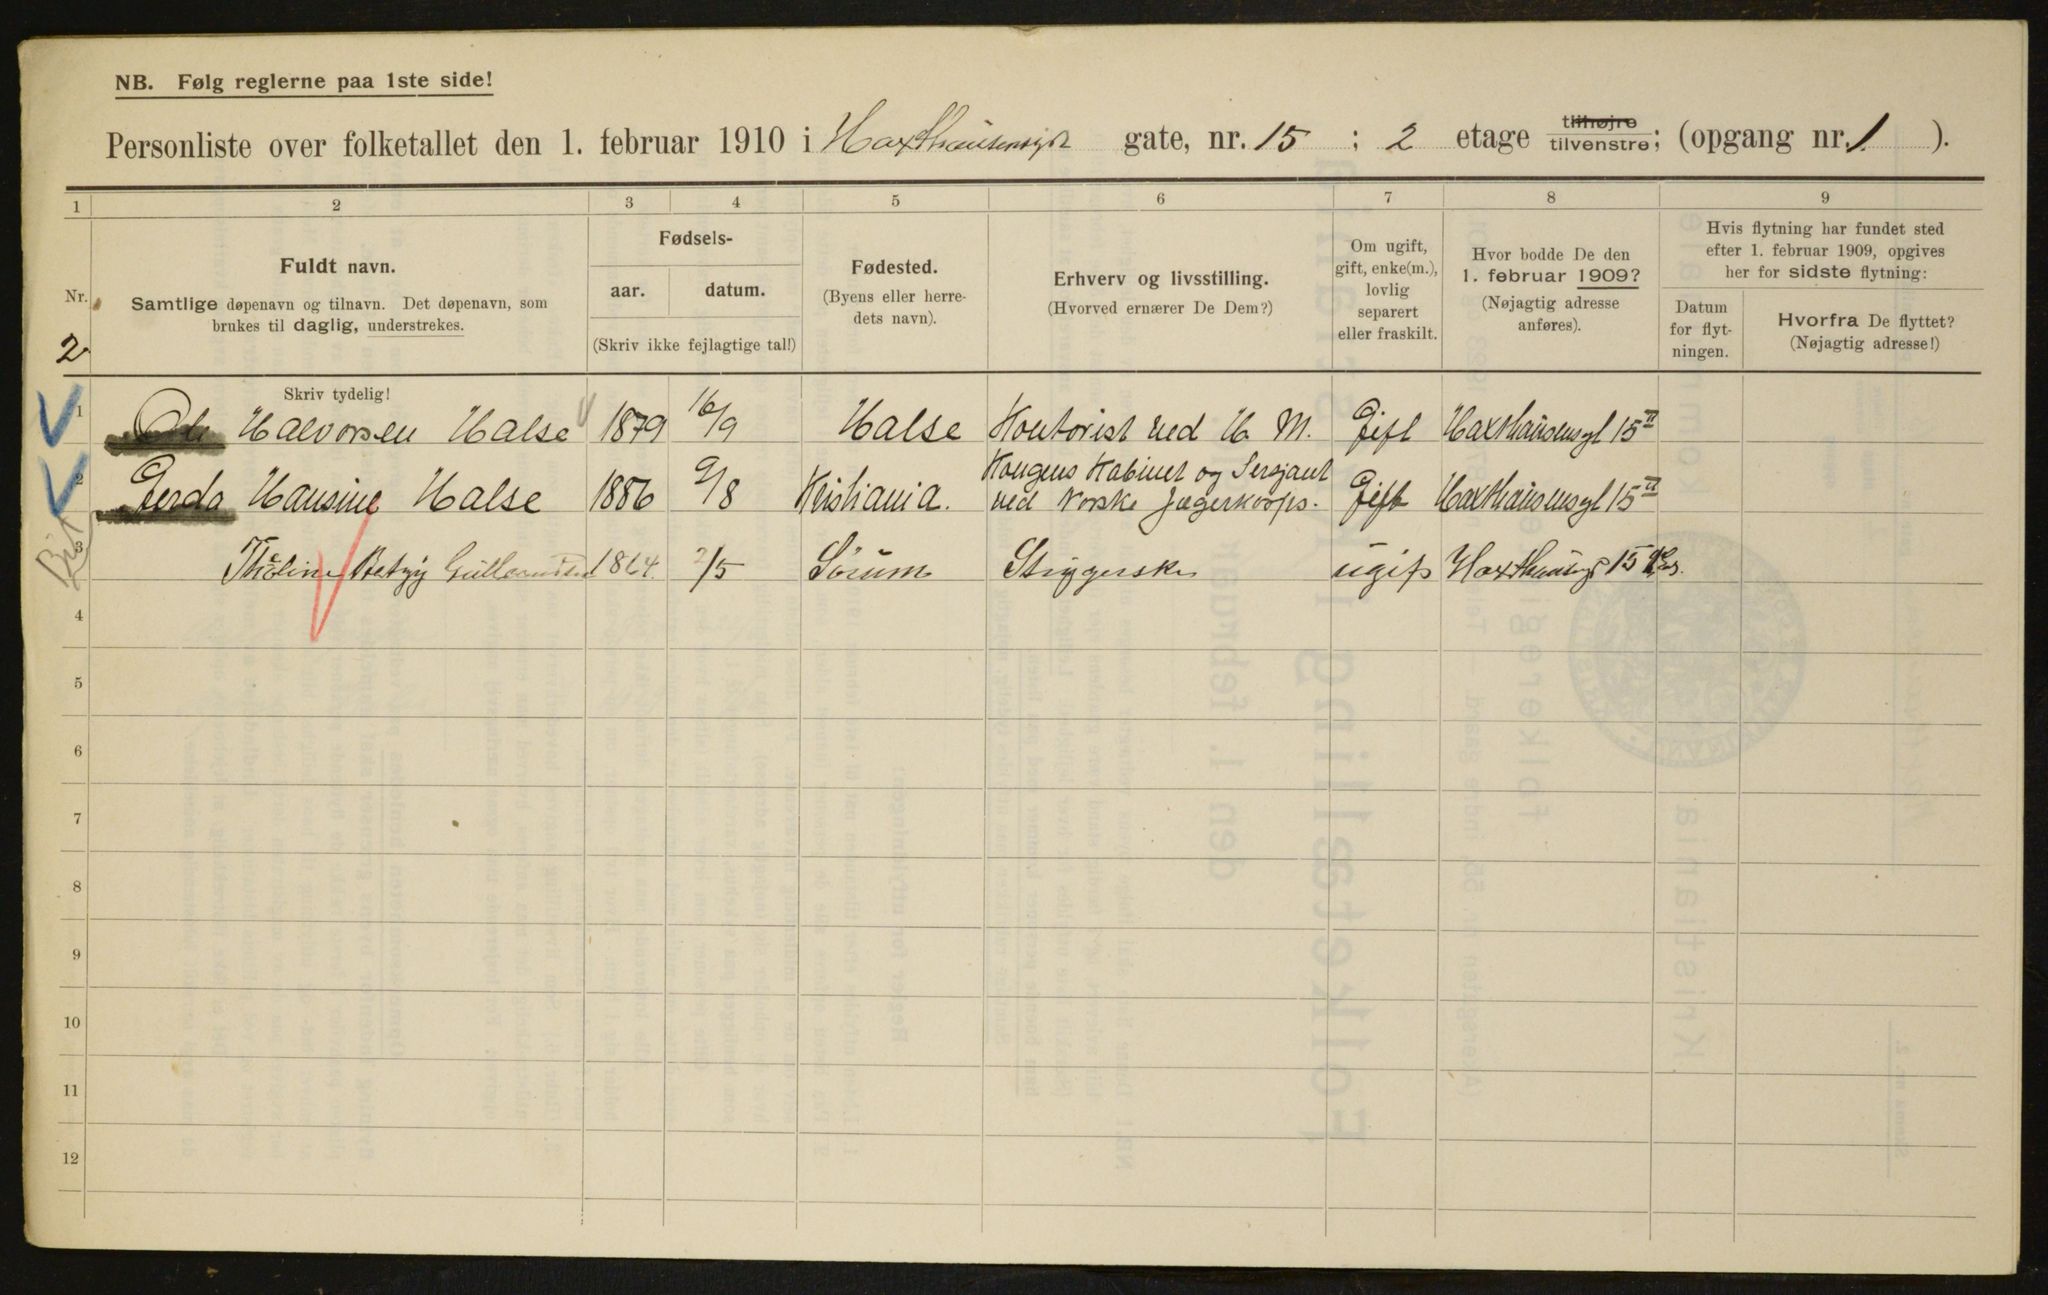 NB. Følg reglerne paa 1ste side!
Personliste over folketallet den 1. februar 1910 i Haxthausensgt gate, nr. 15 ; 2 etage tilhøjre tilvenstre; (opgang nr. 1 ).
1 2 3 4 5 6 7 8 9
Nr.
2
Fuldt navn.
Samtlige døpenavn og tilnavn. Det døpenavn, som
brukes til daglig, understrekes.
Skriv tydelig!
Fødsels-
aar. datum.
(Skriv ikke fejlagtige tal!)
Fødested.
(Byens eller herre-
dets navn).
Erhverv og livsstilling.
(Hvorved ernærer De Dem?)
Om ugift,
gift, enke(m.),
lovlig
separert
eller fraskilt.
Hvor bodde De den
1. februar 1909?
(Nøjagtig adresse
anføres).
Hvis flytning har fundet sted
efter 1. februar 1909, opgives
her for sidste flytning:
Datum
for flyt-
ningen.
Hvorfra De flyttet?
(Nøjagtig adresse!)
1 Ole Halvorsen Halse 1879 16/9 Halse Kontorist ved H. M. Gift Haxthausensgt 15 II
Kongens Kabinet og Sersjant
2 Gerda Hansine Halse 1886 9/8 Kristiania. ved Norske Jægerkorps. Gift Haxthausensgt 15 II
3 Betzy 1864 2/5 Sørum Strygerske ugift Haxthausensgt 15
4
5
6
7
8
9
10
11
12